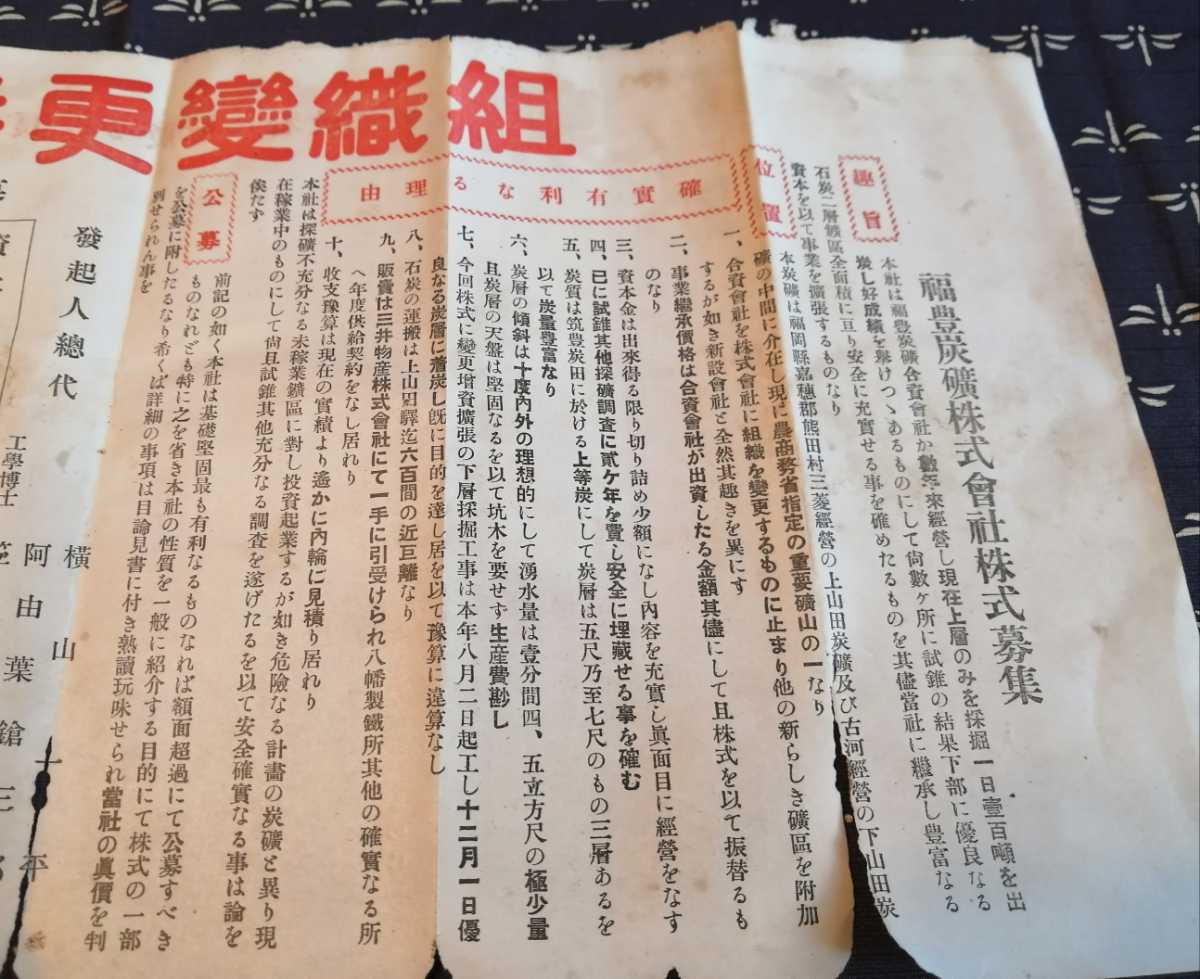 組織變更
福豊炭礦株式會社株式募集
趣旨
本社は福豊炭礦合資會社か數年來經營し現在上層のみを採掘一日壹百噸を出
炭し好成績を擧けつゝあるものにして尙數ヶ所に試錐の結果下部に優良なる
石炭二層鑛區全面積に亘り安全に充實せる事を確めたるものを其儘當社に繼承し豊富なる
資本を以て事業を擴張するものなり
位置
本炭礦は福岡縣嘉穗郡熊田村三菱經營の上山田炭礦及び古河經營の下山田炭
礦の中間に介在し現に農商務省指定の重要礦山の一なり
確實有利なる理由
一、合資會社を株式會社に組織を變更するものに止まり他の新らしき礦區を附加
するが如き新設會社と全然其趣きを異にす
二、事業繼承價格は合資會社が出資したる金額其儘にして且株式を以て振替るも
のなり
三、資本金は出來得る限り切り詰め少額になし內容を充實し眞面目に經營をなす
四、已に試錐其他探礦調査に貳ケ年を費し安全に埋藏せる事を確む
五、炭質は筑豊炭田に於ける上等炭にして炭層は五尺乃至七尺のもの三層あるを
以て炭量豊富なり
六、炭層の傾斜は十度內外の理想的にして湧水量は壹分間四、五立方尺の極少量
且炭層の天盤は堅固なるを以て坑木を要せず生產費尠し
七、今回株式に變更增資擴張の下層採掘工事は本年八月二日起工し十二月一日優
良なる炭層に着炭し旣に目的を達し居を以て豫算に違算なし
八、石炭の運搬は上山田驛迄六百間の近距離なり
九、販賣は三井物產株式會社にて一手に引受けられ八幡製鐵所其他の確實なる所
へ年度供給契約をなし居れり
十、收支豫算は現在の實績より遙かに內輪に見積り居れり
本社は探礦不充分なる未稼業鑛區に對し投資起業するが如き危險なる計畫の炭礦と異り現
在稼業中のものにして尙且試錐其他充分なる調査を遂げたるを以て安全確實なる事は論を
俟たず
公募
前記の如く本社は基礎堅固最も有利なるものなれば額面超過にて公募すべき
ものなれども特に之を省き本社の性質を一般に紹介する目的にて株式の一部
を公募に附したるなり希くば詳細の事項は目論見書に付き熟讀玩味せられ當社の眞價を判
別せられん事を
發起人總代
橫山
工學博士
阿由葉鎗三郎
十平